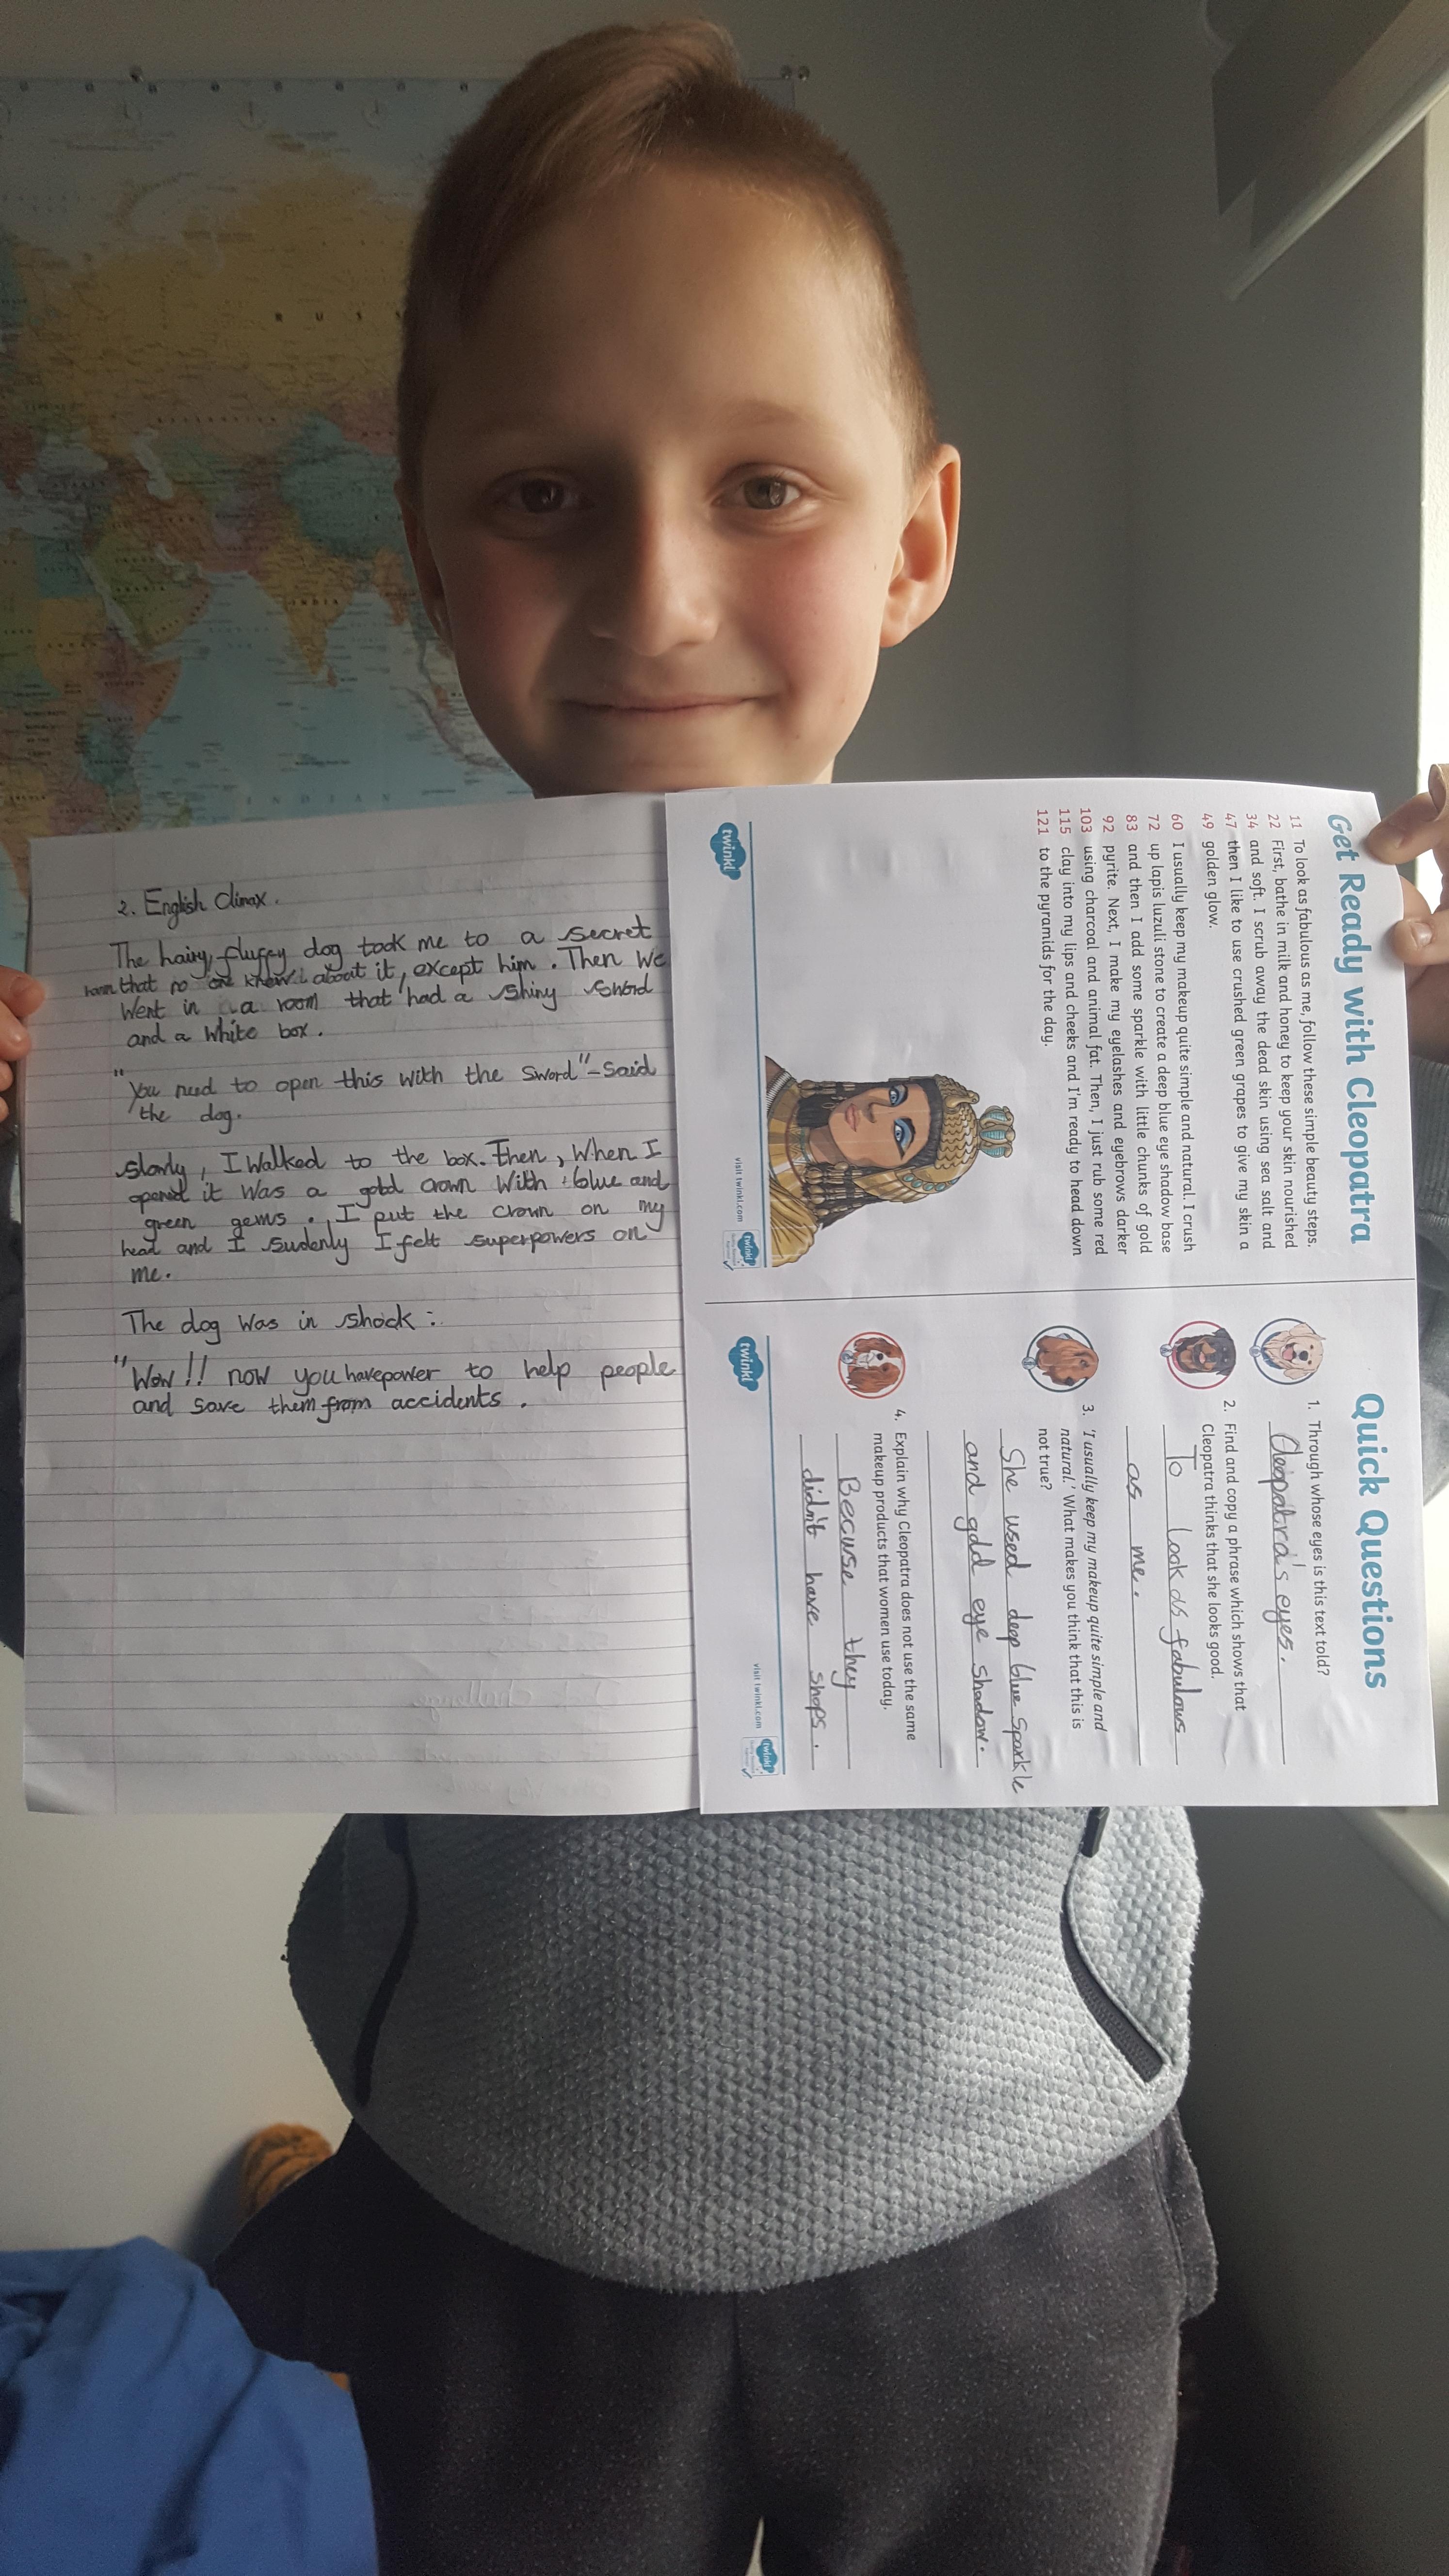 2. English Climax.
The hairy, fluffey dog took me to a secret
room that no one know about it, except him. Then We
Went in a room that had a shiny sword
and a white box.
"You need to open this with the sword"-said
the dog.
slowly, I Walked to the box. Then, When I
opened it was a gold crown with blue and
green gems. I put the crown on my
head and I sudenly I felt superpowers on
me.
The dog was in shock:
"Wow!! now you have power to help people
and save them from accidents.
Get Ready with Cleopatra
11 To look as fabulous as me, follow these simple beauty steps.
22 First, bathe in milk and honey to keep your skin nourished
34 and soft. I scrub away the dead skin using sea salt and
47 then I like to use crushed green grapes to give my skin a
49 golden glow.
60 I usually keep my makeup quite simple and natural. I crush
72 up lapis luzuli stone to create a deep blue eye shadow base
83 and then I add some sparkle with little chunks of gold
92 pyrite. Next, I make my eyelashes and eyebrows darker
103 using charcoal and animal fat. Then, I just rub some red
115 clay into my lips and cheeks and I'm ready to head down
121 to the pyramids for the day.
twinkl
visit twinkl.com
twinkl
Quick Questions
1. Through whose eyes is this text told?
Cleopatra's eyes.
2. Find and copy a phrase which shows that
Cleopatra thinks that she looks good.
To look as fabulous
as me.
3. 'I usually keep my makeup quite simple and
natural.' What makes you think that this is
not true?
She used deep blue sparkle
and gold eye shadow.
4. Explain why Cleopatra does not use the same
makeup products that women use today.
Becuse they
didn't have shops.
twinkl
visit twinkl.com
twinkl
RUSS
INDIA
ARABIA
INDIAN